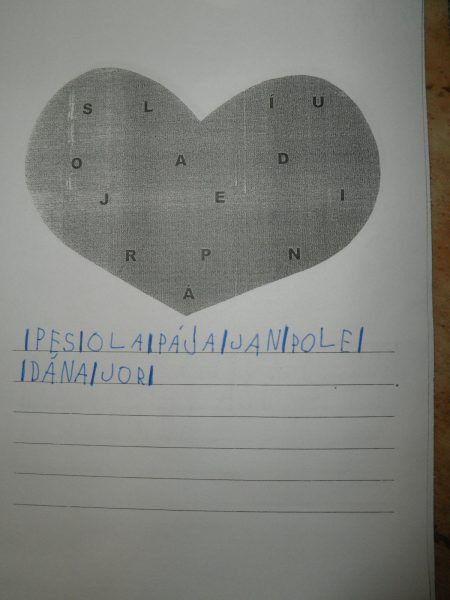 S L Í U
O A D
J E I
R P N
Á
|PES|OLA|PÁJA|JAN|POLE|
|DÁNA|JOR|